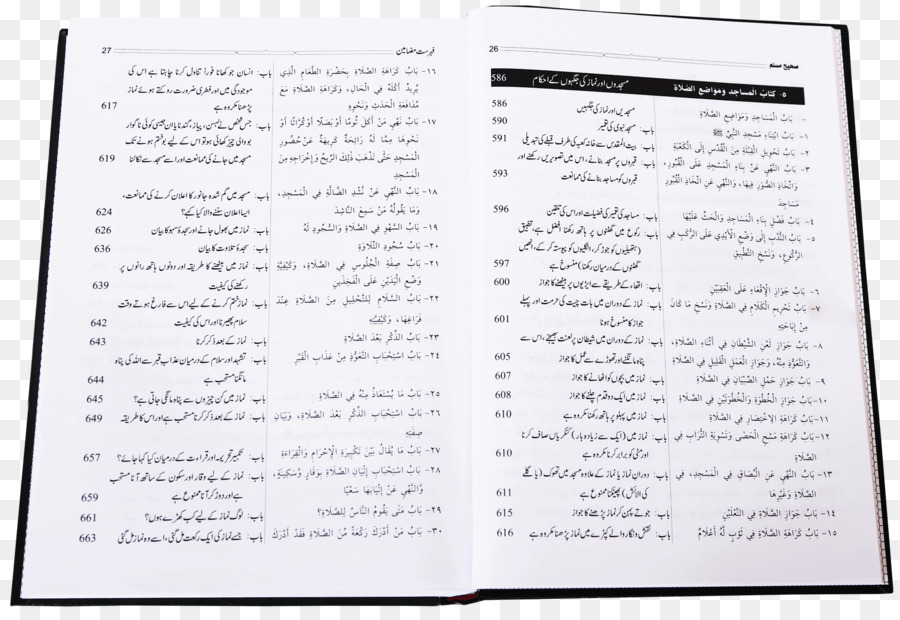 26
صحیح مسلم
٥- كتاب المساجد ومواضع الصلاة
مسجدوں اور نماز کی جگہوں کے احکام
586
- بَابُ الْمَسَاجِدِ وَمَوَاضِعِ الصَّلَاةِ
مسجدیں اور نماز کی جگہیں
586
١- بَابُ ابْتِنَاءِ مَسْجِدِ النَّبِيِّ ﷺ
باب: مسجد نبوی کی تعمیر
590
٢- بَابُ تَحْوِيلِ الْقِبْلَةِ مِنَ الْقُدْسِ إِلَى الْكَعْبَةِ
باب: بیت المقدس سے خانہ کعبہ کی طرف قبلے کی تبدیلی
591
٣- بَابُ النَّهْيِ عَنْ بِنَاءِ الْمَسَاجِدِ عَلَى الْقُبُورِ،
وَاتِّخَاذِ الصُّوَرِ فِيهَا، وَالنَّهْيِ عَنِ اتِّخَاذِ الْقُبُورِ
مَسَاجِدَ
باب: قبروں پر مسجد بنانے، اس میں تصویریں رکھنے اور
قبروں کو مساجد بنانے کی ممانعت
593
٤- بَابُ فَضْلِ بِنَاءِ الْمَسَاجِدِ وَالْحَثِّ عَلَيْهَا
باب: مساجد کی تعمیر کی فضیلت اور اس کی تلقین
596
٥- بَابُ النَّدْبِ إِلَى وَضْعِ الْأَيْدِي عَلَى الرُّكَبِ فِي
الرُّكُوعِ، وَنَسْخِ التَّطْبِيقِ
باب: رکوع میں گھٹنوں پر ہاتھ رکھنا افضل ہے، تطبیق
(ہتھیلیوں کو جوڑ کر، انگلیوں کو پیوستہ کر کے، انھیں
گھٹنوں کے درمیان رکھنا) منسوخ ہے
597
٦- بَابُ جَوَازِ الْإِقْعَاءِ عَلَى الْعَقِبَيْنِ
باب: اقعاء کے طریقے سے ایڑیوں پر بیٹھنے کا جواز
600
٧- بَابُ تَحْرِيمِ الْكَلَامِ فِي الصَّلَاةِ وَنَسْخِ مَا كَانَ
مِنْ إِبَاحَتِهِ
باب: نماز کے دوران میں بات چیت کی حرمت اور پہلے
جواز کا منسوخ ہونا
601
٨- بَابُ جَوَازِ لَعْنِ الشَّيْطَانِ فِي أَثْنَاءِ الصَّلَاةِ
وَالتَّعَوُّذِ مِنْهُ، وَجَوَازِ الْعَمَلِ الْقَلِيلِ فِي الصَّلَاةِ
باب: نماز کے دوران میں شیطان پر لعنت بھیجنے، اس سے
پناہ مانگنے اور تھوڑے سے عمل کا جواز
605
٩- بَابُ جَوَازِ حَمْلِ الصِّبْيَانِ فِي الصَّلَاةِ
باب: نماز میں بچوں کو اٹھانے کا جواز
607
١٠- بَابُ جَوَازِ الْخُطْوَةِ وَالْخُطْوَتَيْنِ فِي الصَّلَاةِ
باب: نماز میں ایک دو قدم چلنے کا جواز
608
١١- بَابُ كَرَاهَةِ الِاخْتِصَارِ فِي الصَّلَاةِ
باب: نماز میں پہلو پر ہاتھ رکھنا مکروہ ہے
610
١٢- بَابُ كَرَاهَةِ مَسْحِ الْحَصٰى وَتَسْوِيَةِ التُّرَابِ فِي
الصَّلَاةِ
باب: نماز میں (ایک سے زیادہ بار) کنکریاں صاف کرنا
اور مٹی کو برابر کرنا مکروہ ہے
610
١٣- بَابُ النَّهْيِ عَنِ الْبُصَاقِ فِي الْمَسْجِدِ، فِي
الصَّلَاةِ وَغَيْرِهَا
باب: دوران نماز یا نماز کے علاوہ مسجد میں تھوک (یا گلے
کی آلائش) پھینکنا ممنوع ہے
611
١٤- بَابُ جَوَازِ الصَّلَاةِ فِي النَّعْلَيْنِ
باب: جوتے پہن کر نماز پڑھنے کا جواز
615
١٥- بَابُ كَرَاهَةِ الصَّلَاةِ فِي ثَوْبٍ لَهُ أَعْلَامٌ
باب: نقش و نگار والے کپڑے میں نماز پڑھنا مکروہ ہے
616
فہرست مضامین
27
١٦- بَابُ كَرَاهَةِ الصَّلَاةِ بِحَضْرَةِ الطَّعَامِ الَّذِي
يُرِيدُ أَكْلَهُ فِي الْحَالِ، وَكَرَاهَةِ الصَّلَاةِ مَعَ
مُدَافَعَةِ الْحَدَثِ وَنَحْوِهِ
باب: انسان جو کھانا فوراً تناول کرنا چاہتا ہے اس کی
موجودگی میں اور فطری ضرورت روکتے ہوئے نماز
پڑھنا مکروہ ہے
617
١٧- بَابُ نَهْيِ مَنْ أَكَلَ ثُومًا أَوْ بَصَلًا أَوْ كُرَّاثًا أَوْ
نَحْوَهَا مِمَّا لَهُ رَائِحَةٌ كَرِيهَةٌ عَنْ حُضُورِ
الْمَسْجِدِ حَتَّى تَذْهَبَ ذٰلِكَ الرِّيحُ وَإِخْرَاجِهِ مِنَ
الْمَسْجِدِ
باب: جس شخص نے لہسن، پیاز، گندنا یا ان جیسی کوئی ناگوار
بو والی چیز کھائی ہو تو اس کے لیے بو ختم ہونے تک
مسجد میں جانے کی ممانعت اور اسے مسجد سے نکالنا
619
١٨- بَابُ النَّهْيِ عَنْ نَشْدِ الضَّالَّةِ فِي الْمَسْجِدِ،
وَمَا يَقُولُهُ مَنْ سَمِعَ النَّاشِدَ
باب: مسجد میں گم شدہ جانور کا اعلان کرنے کی ممانعت،
ایسا اعلان سننے والا کیا کہے؟
624
١٩- بَابُ السَّهْوِ فِي الصَّلَاةِ وَالسُّجُودِ لَهُ
باب: نماز میں بھول جانے اور سجدۂ سہو کا بیان
626
٢٠- بَابُ سُجُودِ التِّلَاوَةِ
باب: سجدۂ تلاوت کا بیان
636
٢١- بَابُ صِفَةِ الْجُلُوسِ فِي الصَّلَاةِ، وَكَيْفِيَّةِ
وَضْعِ الْيَدَيْنِ عَلَى الْفَخِذَيْنِ
باب: نماز میں بیٹھنے کا طریقہ اور دونوں ہاتھ رانوں پر
رکھنے کی کیفیت
639
٢٢- بَابُ السَّلَامِ لِلتَّحْلِيلِ مِنَ الصَّلَاةِ عِنْدَ
فَرَاغِهَا، وَكَيْفِيَّتِهِ
باب: نماز ختم کرنے کے لیے اس سے فارغ ہوتے وقت
سلام پھیرنا اور اس کی کیفیت
642
٢٣- بَابُ الذِّكْرِ بَعْدَ الصَّلَاةِ
باب: نماز کے بعد ذکر کرنا
643
٢٤- بَابُ اسْتِحْبَابِ التَّعَوُّذِ مِنْ عَذَابِ الْقَبْرِ
باب: تشہد اور سلام کے درمیان عذاب قبر سے اللہ کی پناہ
مانگنا مستحب ہے
644
٢٥- بَابُ مَا يُسْتَعَاذُ مِنْهُ فِي الصَّلَاةِ
باب: نماز میں کن چیزوں سے پناہ مانگی جاتی ہے؟
645
٢٦- بَابُ اسْتِحْبَابِ الذِّكْرِ بَعْدَ الصَّلَاةِ، وَبَيَانِ
صِفَتِهِ
باب: نماز کے بعد ذکر کرنا مستحب ہے اور اس کا طریقہ
649
٢٧- بَابُ مَا يُقَالُ بَيْنَ تَكْبِيرَةِ الْإِحْرَامِ وَالْقِرَاءَةِ
باب: تکبیر تحریمہ اور قراءت کے درمیان کیا کہا جائے؟
657
٢٨- بَابُ اسْتِحْبَابِ إِتْيَانِ الصَّلَاةِ بِوَقَارٍ وَسَكِينَةٍ،
وَالنَّهْيِ عَنْ إِتْيَانِهَا سَعْيًا
باب: نماز کے لیے وقار اور سکون کے ساتھ آنا مستحب
ہے اور دوڑ کر آنا ممنوع ہے
659
٢٩- بَابُ مَتَى يَقُومُ النَّاسُ لِلصَّلَاةِ؟
باب: لوگ نماز کے لیے کب کھڑے ہوں؟
661
٣٠- بَابُ مَنْ أَدْرَكَ رَكْعَةً مِّنَ الصَّلَاةِ فَقَدْ أَدْرَكَ
باب: جسے نماز کی ایک رکعت مل گئی، اسے وہ نماز مل گئی
663